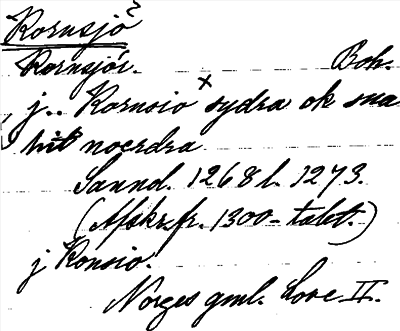 Kornsjö
Kornsjöi. Boh.
j.. Kornsio x sydra ok sua
hit noerdra
Sannd. 1268 l. 1273.
(Afskr. fr. 1300-talet.)
j Konsio.
Norges gml. Love II.